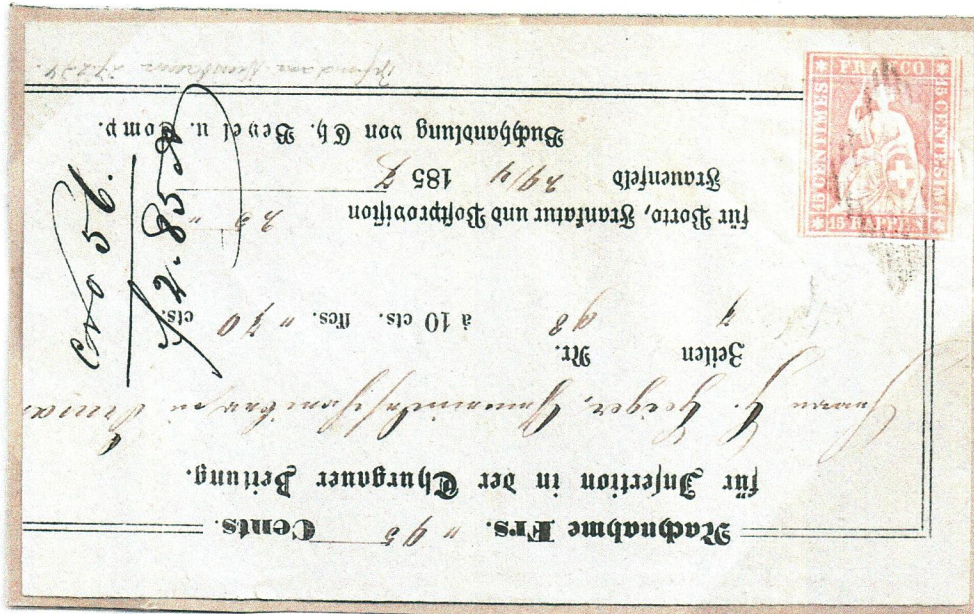 Nachnahme Frs. " 95 Cents.
für Insertion in der Thurgauer Zeitung.
Herrn Geiger, in
Zeilen 7 Nr. 98 à 10 cts. ffcs. " 70 cts.
für Porto, Frankatur und Postprovision 25 "
Frauenfeld 29/4 1857
Buchhandlung von Ch. Beyel u. Comp.
No 56.
2.85
FRANCO
15 CENTIMES
15 CENTESIMI
15 RAPPEN